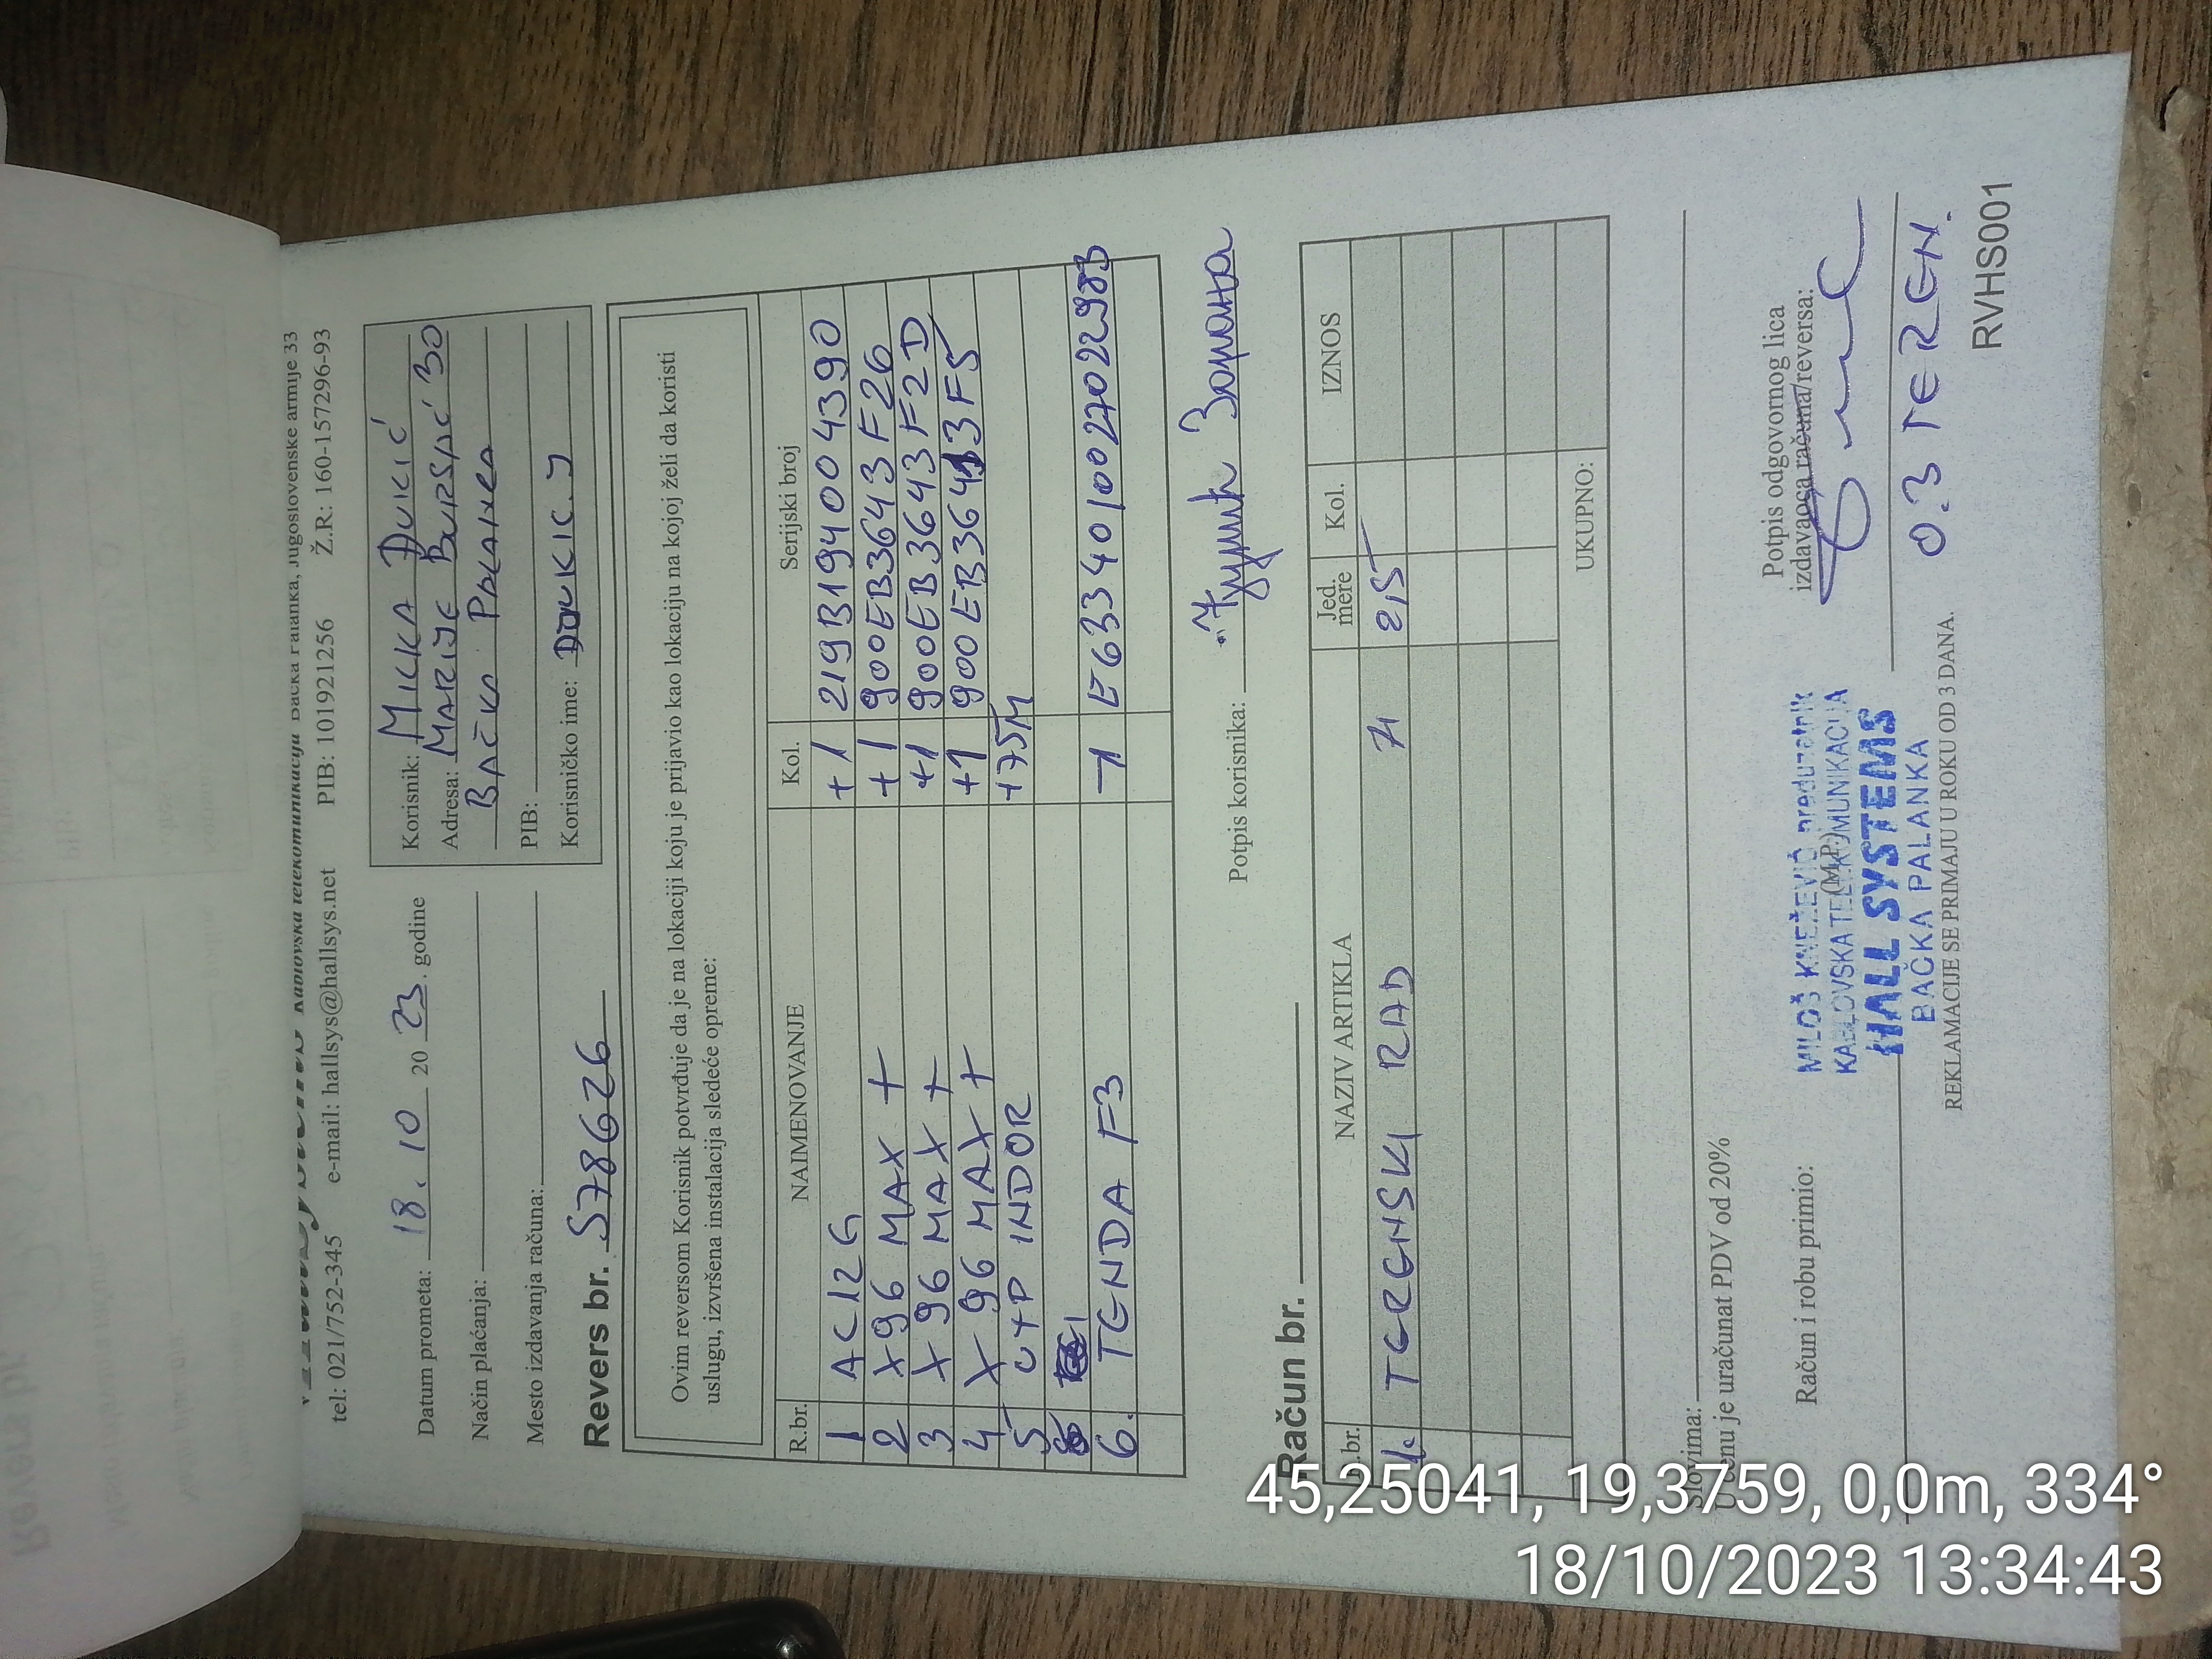 Kablovska telekomunikacija Bačka Palanka, Jugoslovenske armije 33
tel: 021/752-345 e-mail: hallsys@hallsys.net PIB: 101921256 Ž.R: 160-157296-93
Datum prometa: 18. 10 20 23. godine
Način plaćanja:
Mesto izdavanja računa:
Korisnik: MICKA ĐUKIĆ
Adresa: MARIJE BURSAĆ 30
BAČKA PALANKA
PIB:
Korisničko ime: DJUKIC.J
Revers br. 578626
Ovim reversom Korisnik potvrđuje da je na lokaciji koju je prijavio kao lokaciju na kojoj želi da koristi
uslugu, izvršena instalacija sledeće opreme:
R.br. NAIMENOVANJE Kol. Serijski broj
1 AC12G +1 219B194004390
2 X96 MAX + +1 900EB3643F26
3 X96 MAX + +1 900EB3643F2D
4 X96 MAX + +1 900EB36413F5
5 UTP INDOR +75M
6. TENDA F3 -1 E6334010022702298B
Potpis korisnika:
Račun br.
R.br. NAZIV ARTIKLA Jed. mere Kol. IZNOS
1. TERENSKI RAD 71 2,5
UKUPNO:
Slovima:
U cenu je uračunat PDV od 20%
Račun i robu primio:
(M.P.)
Potpis odgovornog lica
izdavaoca računa/reversa:
MILOŠ KNEŽEVIĆ preduzetnik
KABLOVSKA TELEKOMUNIKACIJA
HALL SYSTEMS
BAČKA PALANKA
03 TEREN.
REKLAMACIJE SE PRIMAJU U ROKU OD 3 DANA.
RVHS001
45,25041, 19,3759, 0,0m, 334°
18/10/2023 13:34:43